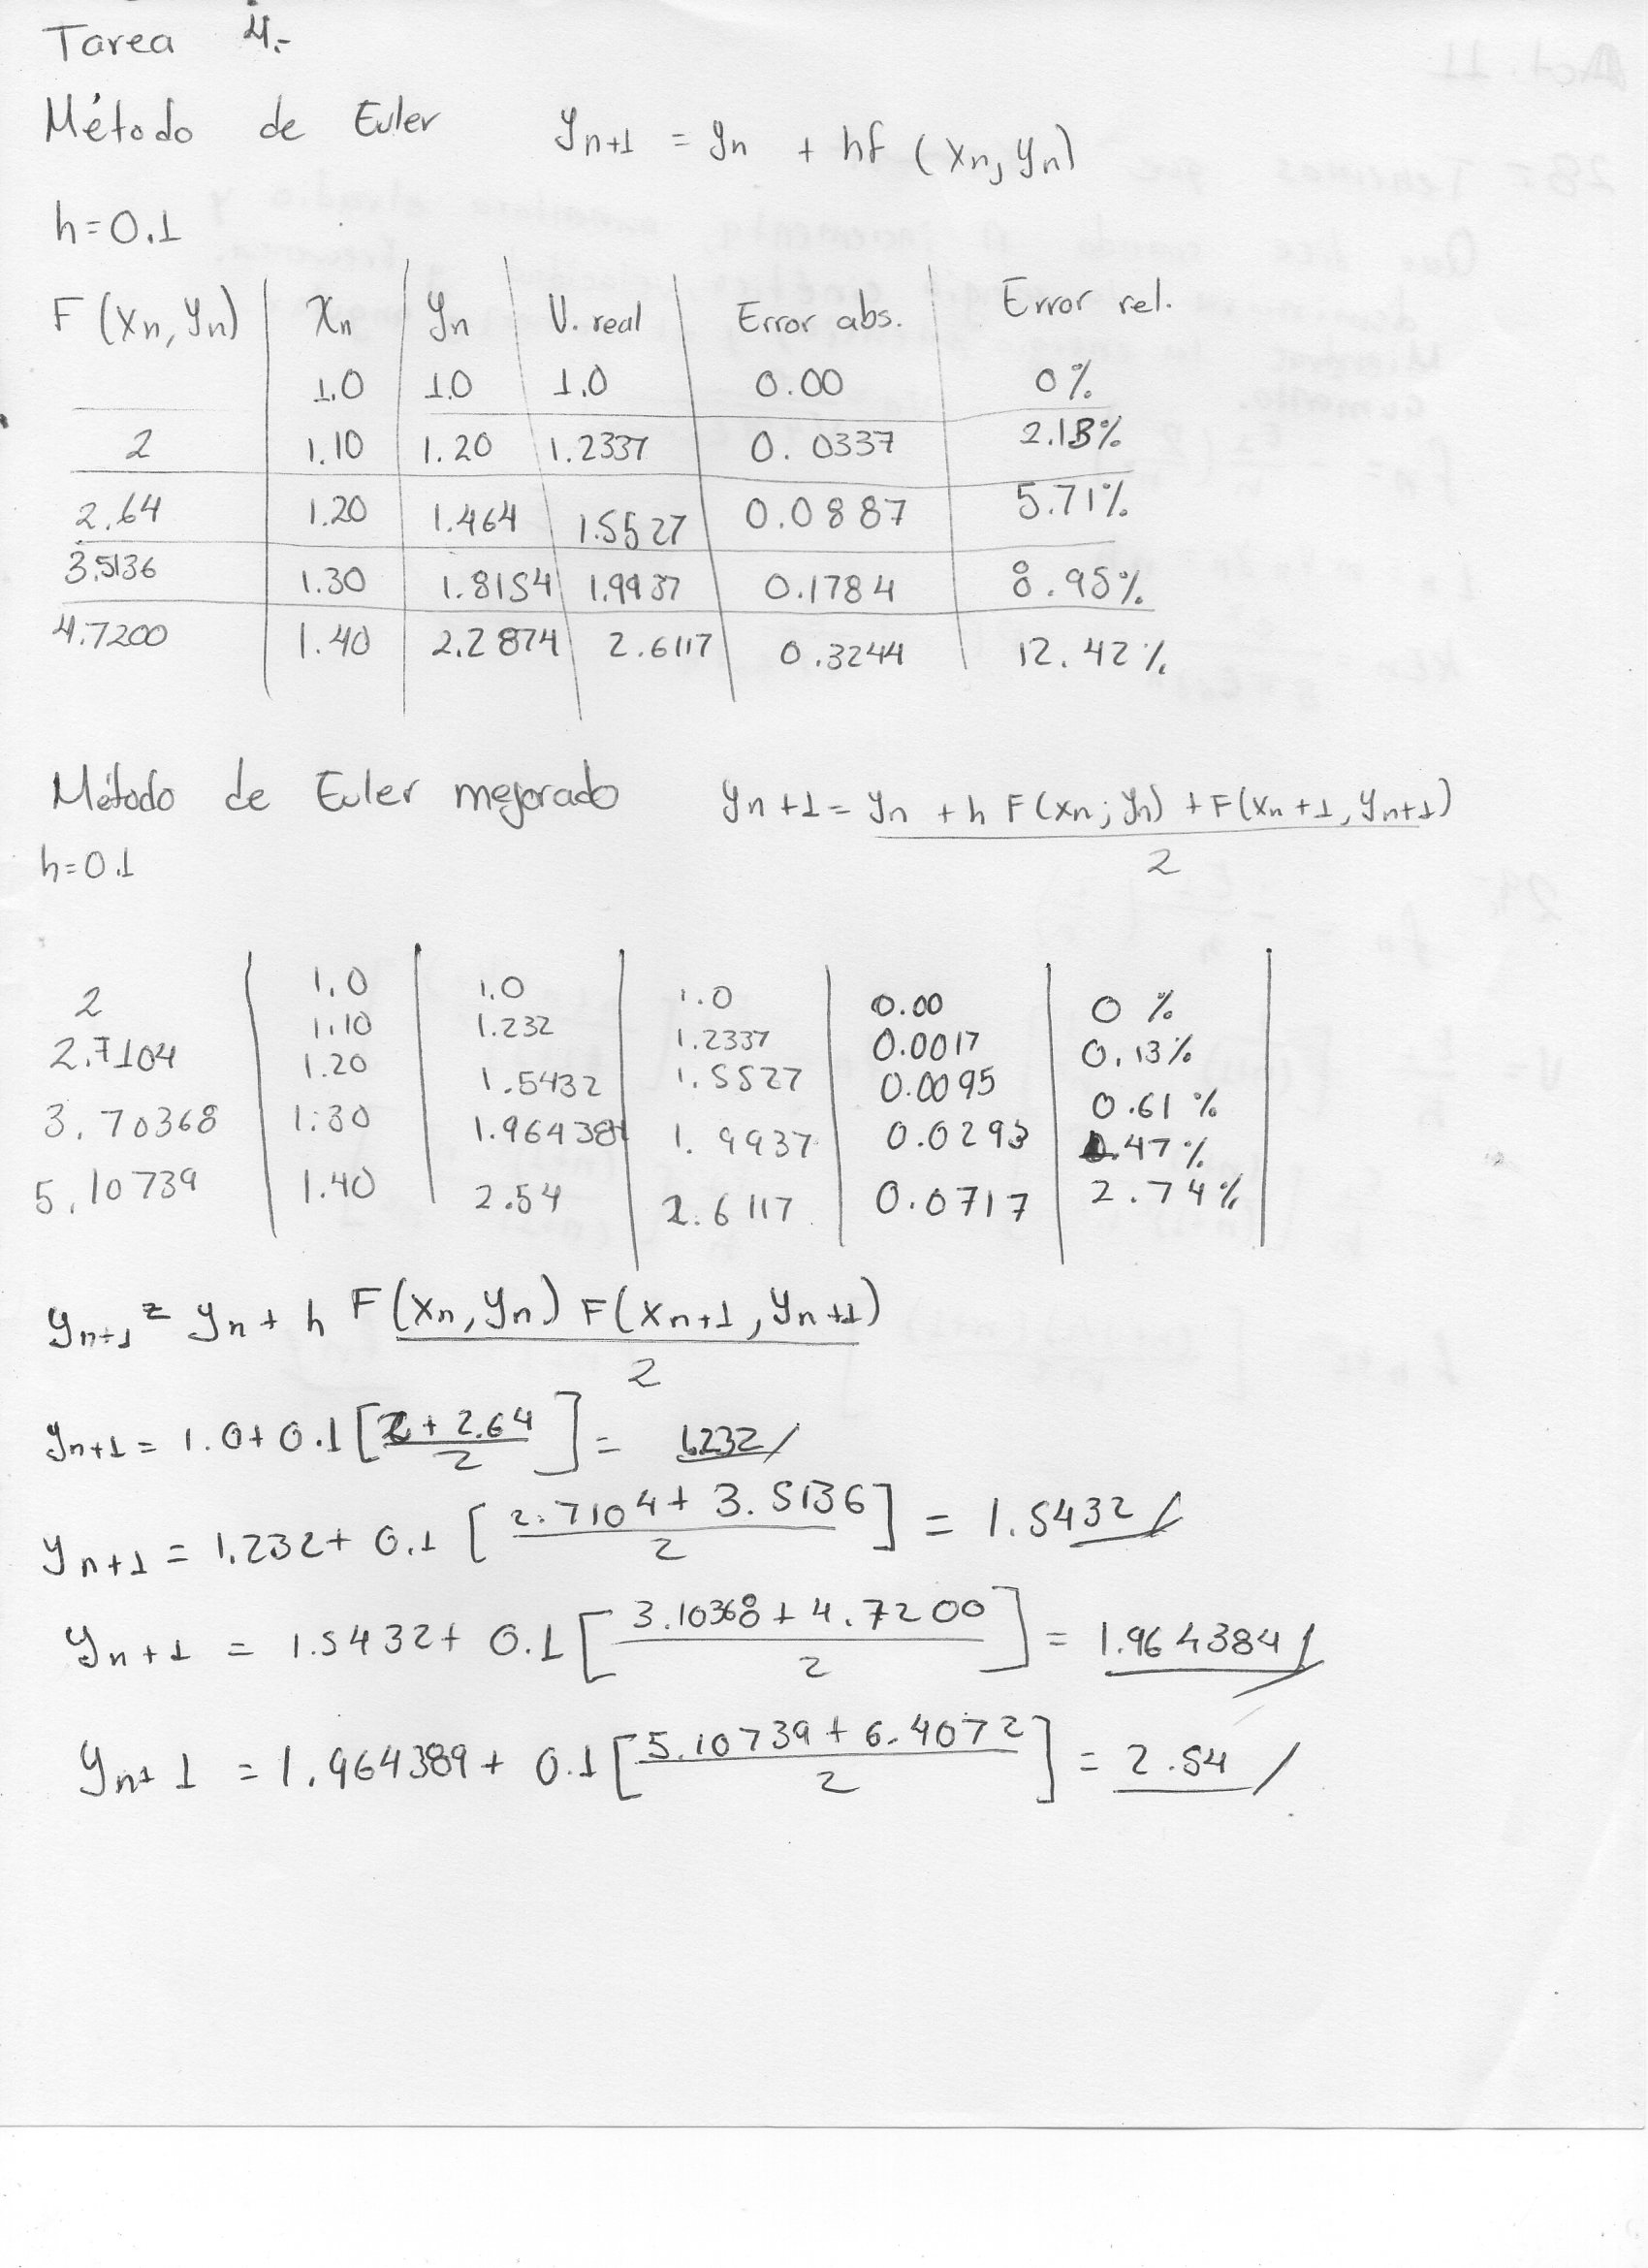 Tarea 4.-
Método de Euler yn+1 = yn + hf (xn, yn)
h=0.1
F (xn, yn) xn yn V. real Error abs. Error rel.
1.0 1.0 1.0 0.00 0%
2 1.10 1.20 1.2337 0.0337 2.18%
2.64 1.20 1.464 1.5527 0.0887 5.71%
3.5136 1.30 1.8154 1.9937 0.1784 8.95%
4.7200 1.40 2.2874 2.6117 0.3244 12.42%
Método de Euler mejorado yn+1 = yn + h F(xn; yn) + F(xn+1, yn+1)
2
h=0.1
2 1.0 1.0 1.0 0.00 0 %
2.7104 1.10 1.232 1.2337 0.0017 0.13%
3.70368 1.20 1.5432 1.5527 0.0095 0.61 %
5.10739 1.30 1.964384 1.9937 0.0293 1.47%
1.40 2.54 2.6117 0.0717 2.74%
yn+1 = yn + h F(xn, yn) F(xn+1, yn+1)
2
yn+1 = 1.0+0.1 [2+2.64
2] = 1.232/
yn+1 = 1.232+ 0.1 [2.7104+3.5136
2] = 1.5432/
yn+1 = 1.5432+ 0.1 [3.10368+4.7200
2] = 1.964384/
yn+1 = 1.964389+ 0.1 [5.10739+6.4072
2] = 2.54 /